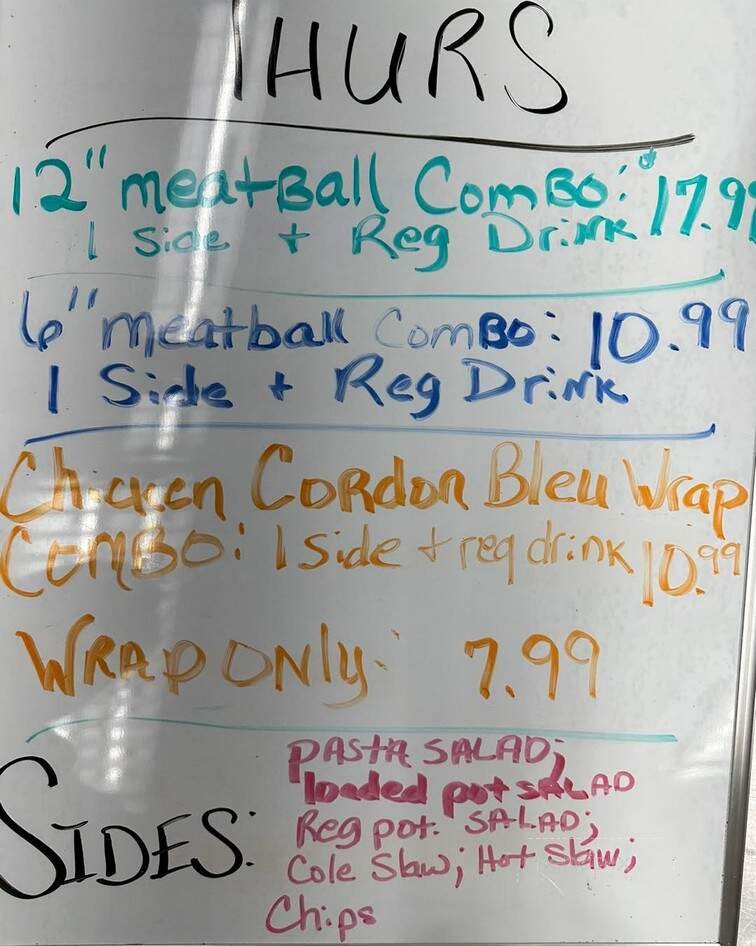 THURS
12" meatBall ComBO: 17.99
1 Side + Reg Drink
6" meatball ComBO: 10.99
1 Side + Reg Drink
Chicken CORdon Bleu Wrap
COMBO: 1 side + reg drink 10.99
WRAP ONly: 7.99
SIDES:
PASTA SALAD;
loaded pot SALAD
Reg pot. SALAD;
Cole Slaw; Hot Slaw;
Chips